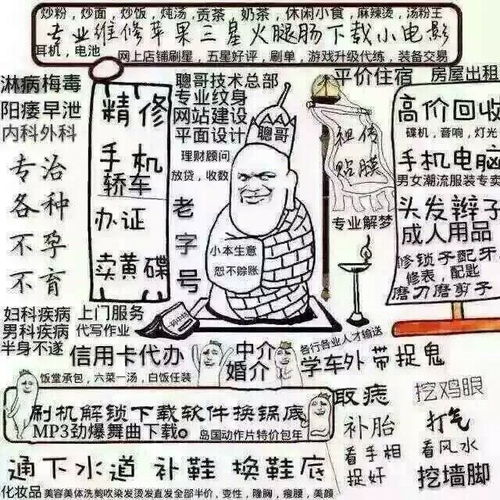 炒粉，炒面，炒饭，炖汤，贡茶 奶茶，休闲小食，麻辣烫，汤粉王
专业维修苹果三星火腿肠下载小电影
耳机，电池 网上店铺刷星，五星好评，刷单，游戏升级代练，装备交易
淋病梅毒
阳痿早泄
内科外科
专治
各种
不孕
不育
妇科疾病
男科疾病
半身不遂
精修
手机
轿车
办证
卖黄碟
上门服务
代写作业
聪哥技术总部
专业纹身
网站建设
平面设计
理财顾问
放贷，收数
老字号
聪哥
小本生意
恕不赊账
平价住宿 房屋出租
祖传
贴膜
专业解梦
高价回收
碟机，音响，灯光
手机电脑
男女潮流服装专卖
头发辫子
成人用品
修锁子配牙
修表，配匙
磨刀磨剪子
信用卡代办
饭堂承包，六菜一汤，白饭任装
中介
婚介
各行各业人才输送
学车外带捉鬼
刷机解锁下载软件换锅底
MP3劲爆舞曲下载。 岛国动作片特价包年
取痣
补胎
看手相
捉奸
挖鸡眼
打气
看风水
挖墙脚
通下水道 补鞋 换鞋底
化妆品 美容美体洗剪吹染发烫发直发全部半价，变性，隆胸，瘦腰，美颜